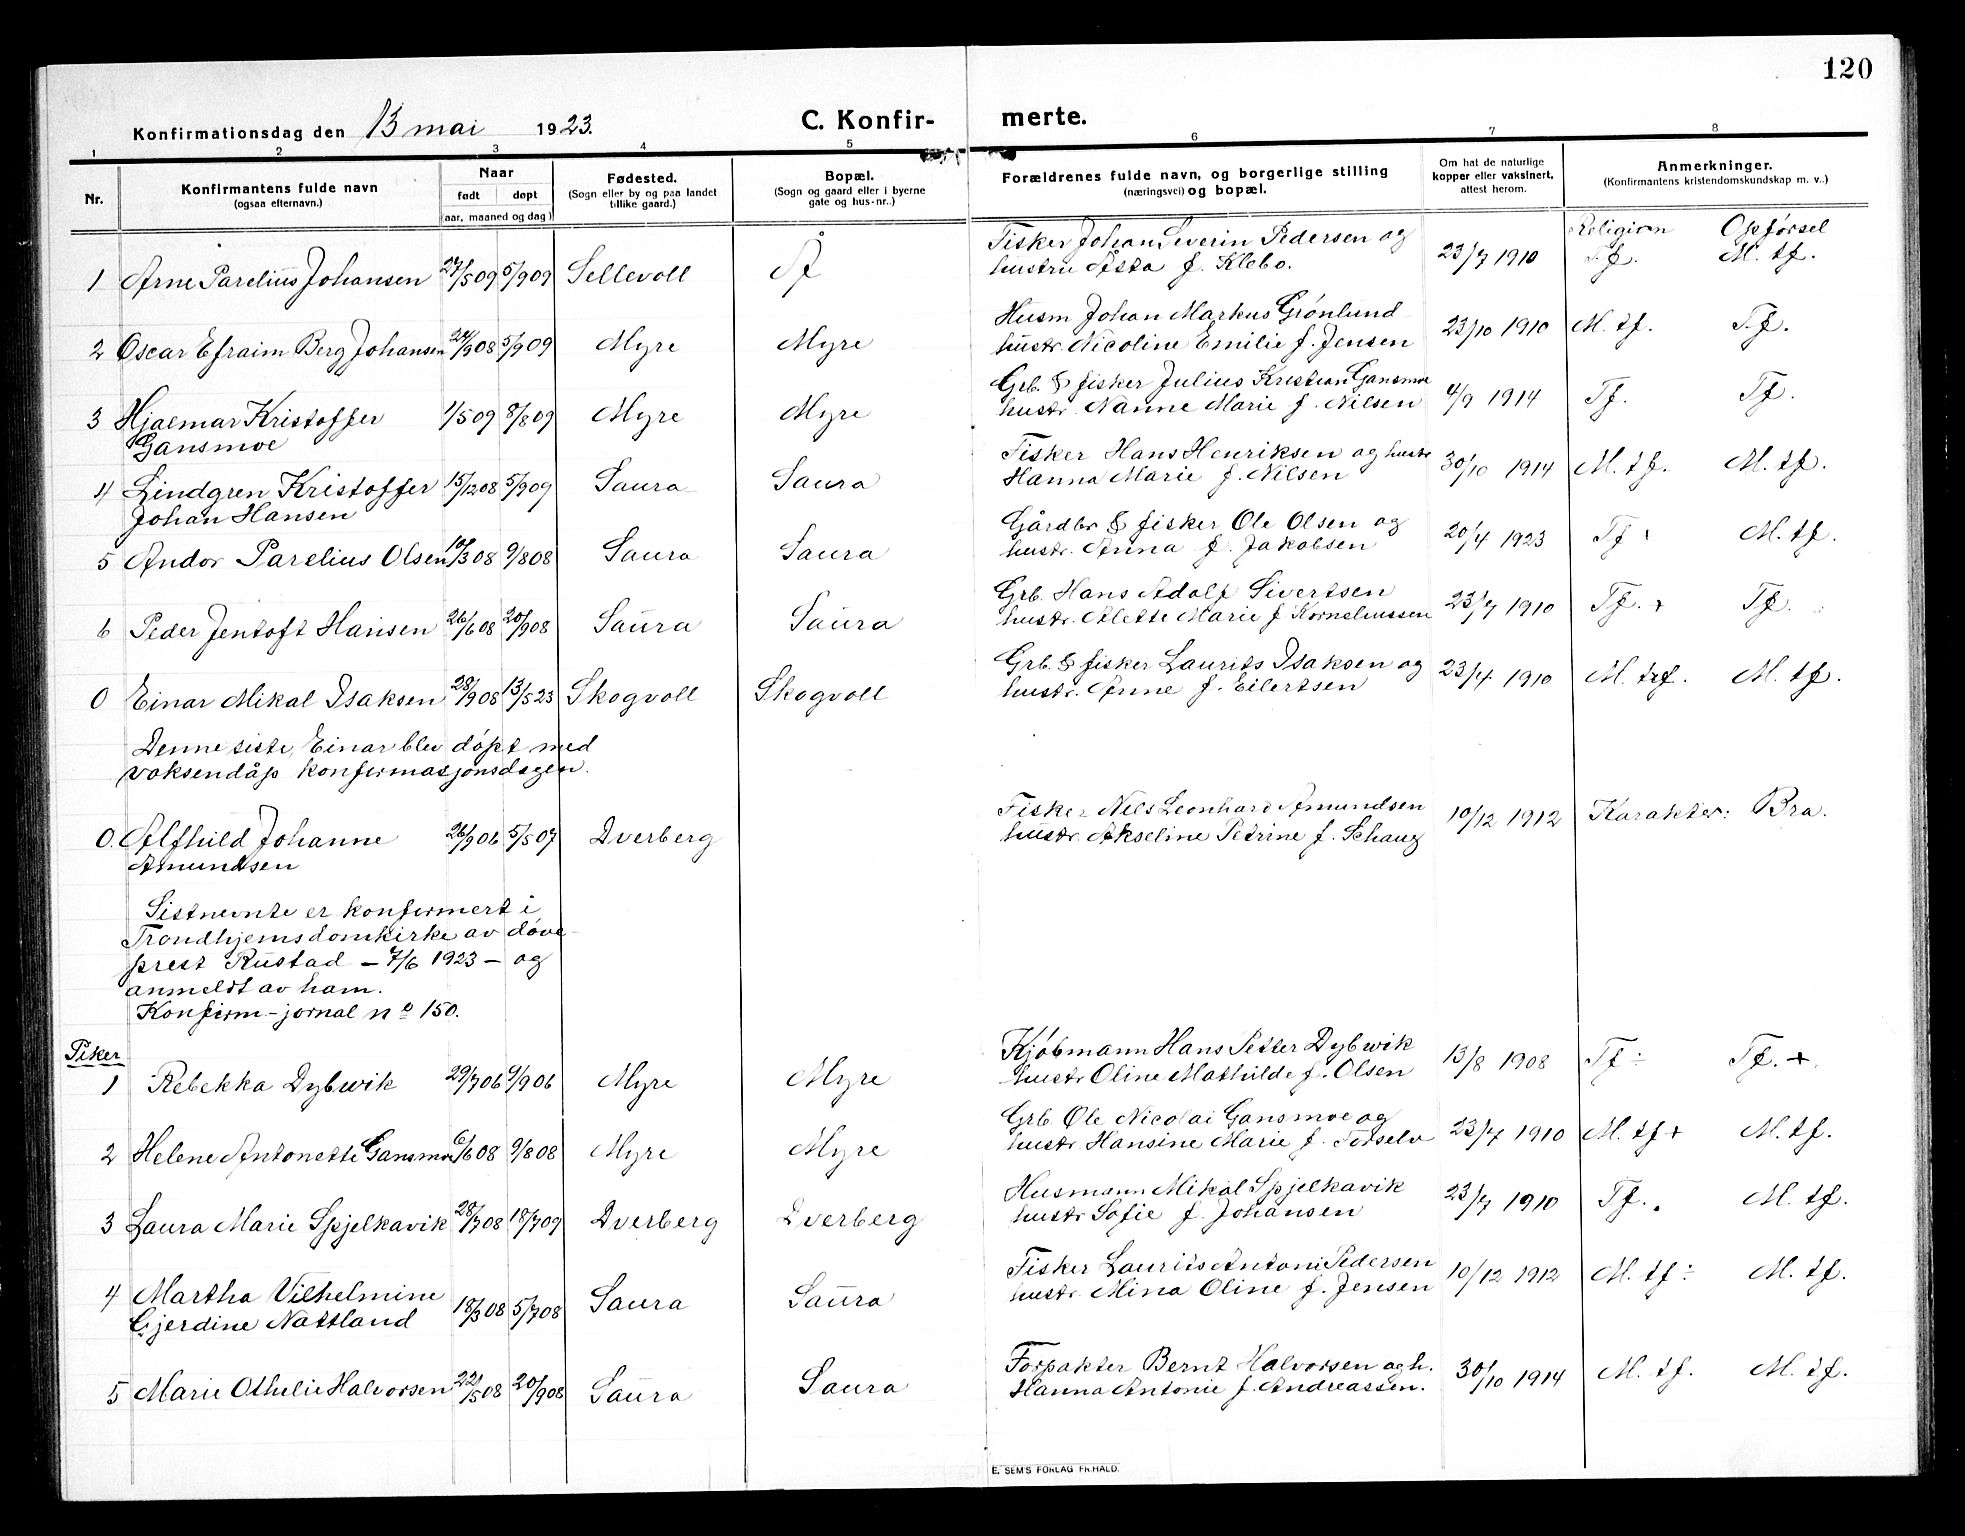 120
Konfirmationsdag den 13 mai 1923.
C. Konfir- merte.
1 2 3 4 5 6 7 8
Nr.
Konfirmantens fulde navn
(ogsaa efternavn.)
Naar
født døpt
(aar, maaned og dag)
Fødested.
(Sogn eller by og paa landet
tillike gaard.)
Bopæl.
(Sogn og gaard eller i byerne
gate og hus-nr..)
Forældrenes fulde navn, og borgerlige stilling
(næringsvei) og bopæl.
Om hat de naturlige
kopper eller vaksinert,
attest herom.
Anmerkninger.
(Konfirmantens kristendomskundskap m. v..)
Religion Opførsel
Fisker Johan Severin Pedersen og
1 Arne Parelius Johansen 27/5 09 5/9 09 Sellevoll Å hustru Asta f. Klebo. 23/7 1910 T.f. M. tf.
Husm Johan Markus Grønlund
2 Oscar Efraim Berg Johansen 24/9 08 5/9 09 Myre Myre hustr. Nicoline Emilie f. Jensen 23/10 1910 M. tf. T.f.
Grb. & fisker Julius Kristian Gansmoe
3 Hjalmar Kristoffer 1/5 09 8/8 09 Myre Myre hustr. Nanne Marie f. Nilsen 4/9 1914 Tf. Tf.
Gansmoe
Fisker Hans Henriksen og hustr
4 Lindgren Kristoffer 15/12 08 5/9 09 Saura Saura Hanna Marie f. Nilsen 30/10 1914 M. tf. M. tf.
Johan Hansen
Gårdbr & fisker Ole Olsen og
5 Andor Parelius Olsen 10/3 08 9/8 08 Saura Saura hustr. Anna f. Jakobsen 20/4 1923 Tf M. tf.
Grb. Hans Adolf Sivertsen
6 Peder Jentoft Hansen 26/6 08 20/9 08 Saura Saura hustr. Alette Marie f Korneliussen 23/7 1910 Tf. + Tf.
Grb. & fisker Laurits Isaksen og
0 Einar Mikal Isaksen 28/9 08 13/5 23 Skogvoll Skogvoll hustr. Anne f. Eilertsen 23/4 1910 M. tf. M. tf.
Denne siste, Einar blev døpt med
voksendåp konfirmasjonsdagen.
Fisker Nils Leonhard Amundsen
0. Alfhild Johanne 26/9 06 5/5 07 Dverberg hustr. Akseline Petrine f. Schang 10/12 1912 Karakter: Bra.
Amundsen
Sistnevnte er konfirmert i
Trondhjems domkirke av døve-
prest Rustad – 7/6 1923 – og
anmeldt av ham.
Konfirm-jornal nº 150.
Piker
Kjøbmann Hans Petter Dybwik
1 Rebekka Dybwik 29/7 06 9/9 06 Myre Myre hustr Oline Mathilde f. Olsen 13/8 1908 Tf ÷ Tf. +
Grb. Ole Nicolai Gansmoe og
2 Helene Antonette Gansmoe 6/6 08 9/8 08 Myre Myre hustr Hansine Marie f. Torselv 23/7 1910 M. tf + M. tf.
Husmann Mikal Spjelkavik
3 Laura Marie Spjelkavik 28/7 08 18/7 09 Dverberg Dverberg hustr Sofie f. Johansen 23/7 1910 Tf. M. tf.
Fisker Laurits Antoni Pedersen
4 Martha Vilhelmine
Gjerdine Nattland 18/3 08 5/7 08 Saura Saura hustr. Mina Oline f. Jensen 10/12 1912 M. tf ÷ M. tf.
Forpakter Bernt Halvorsen og h.
5 Marie Othelie Halvorsen 22/5 08 20/9 08 Saura Saura Hanna Antonie f. Andreassen. 30/10 1914 M. tf. M. tf.
E. SEM'S FORLAG FR.HALD.